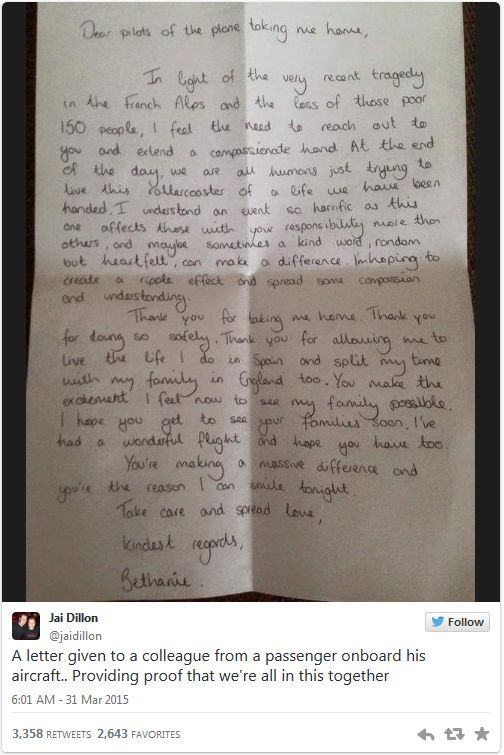 Dear pilots of the plane taking me home,
In light of the very recent tragedy
in the French Alps and the loss of those poor
150 people, I feel the need to reach out to
you and extend a compassionate hand. At the end
of the day, we are all humans just trying to
live this rollercoaster of a life we have been
handed. I understand an event so horrific as this
one affects those with your responsibility more than
others, and maybe sometimes a kind word, random
but heartfelt, can make a difference. Im hoping to
create a ripple effect and spread some compassion
and understanding.
Thank you for taking me home. Thank you
for doing so safely. Thank you for allowing me to
live the life I do in Spain and split my time
with my family in England too. You make the
excitement I feel now to see my family possible.
I hope you get to see your families soon. I've
had a wonderful flight and hope you have too.
You're making a massive difference and
you're the reason I can smile tonight.
Take care and spread love,
kindest regards,
Bethanie.
Jai Dillon
@jaidillon
Follow
A letter given to a colleague from a passenger onboard his
aircraft.. Providing proof that we're all in this together
6:01 AM - 31 Mar 2015
3,358 RETWEETS 2,643 FAVORITES